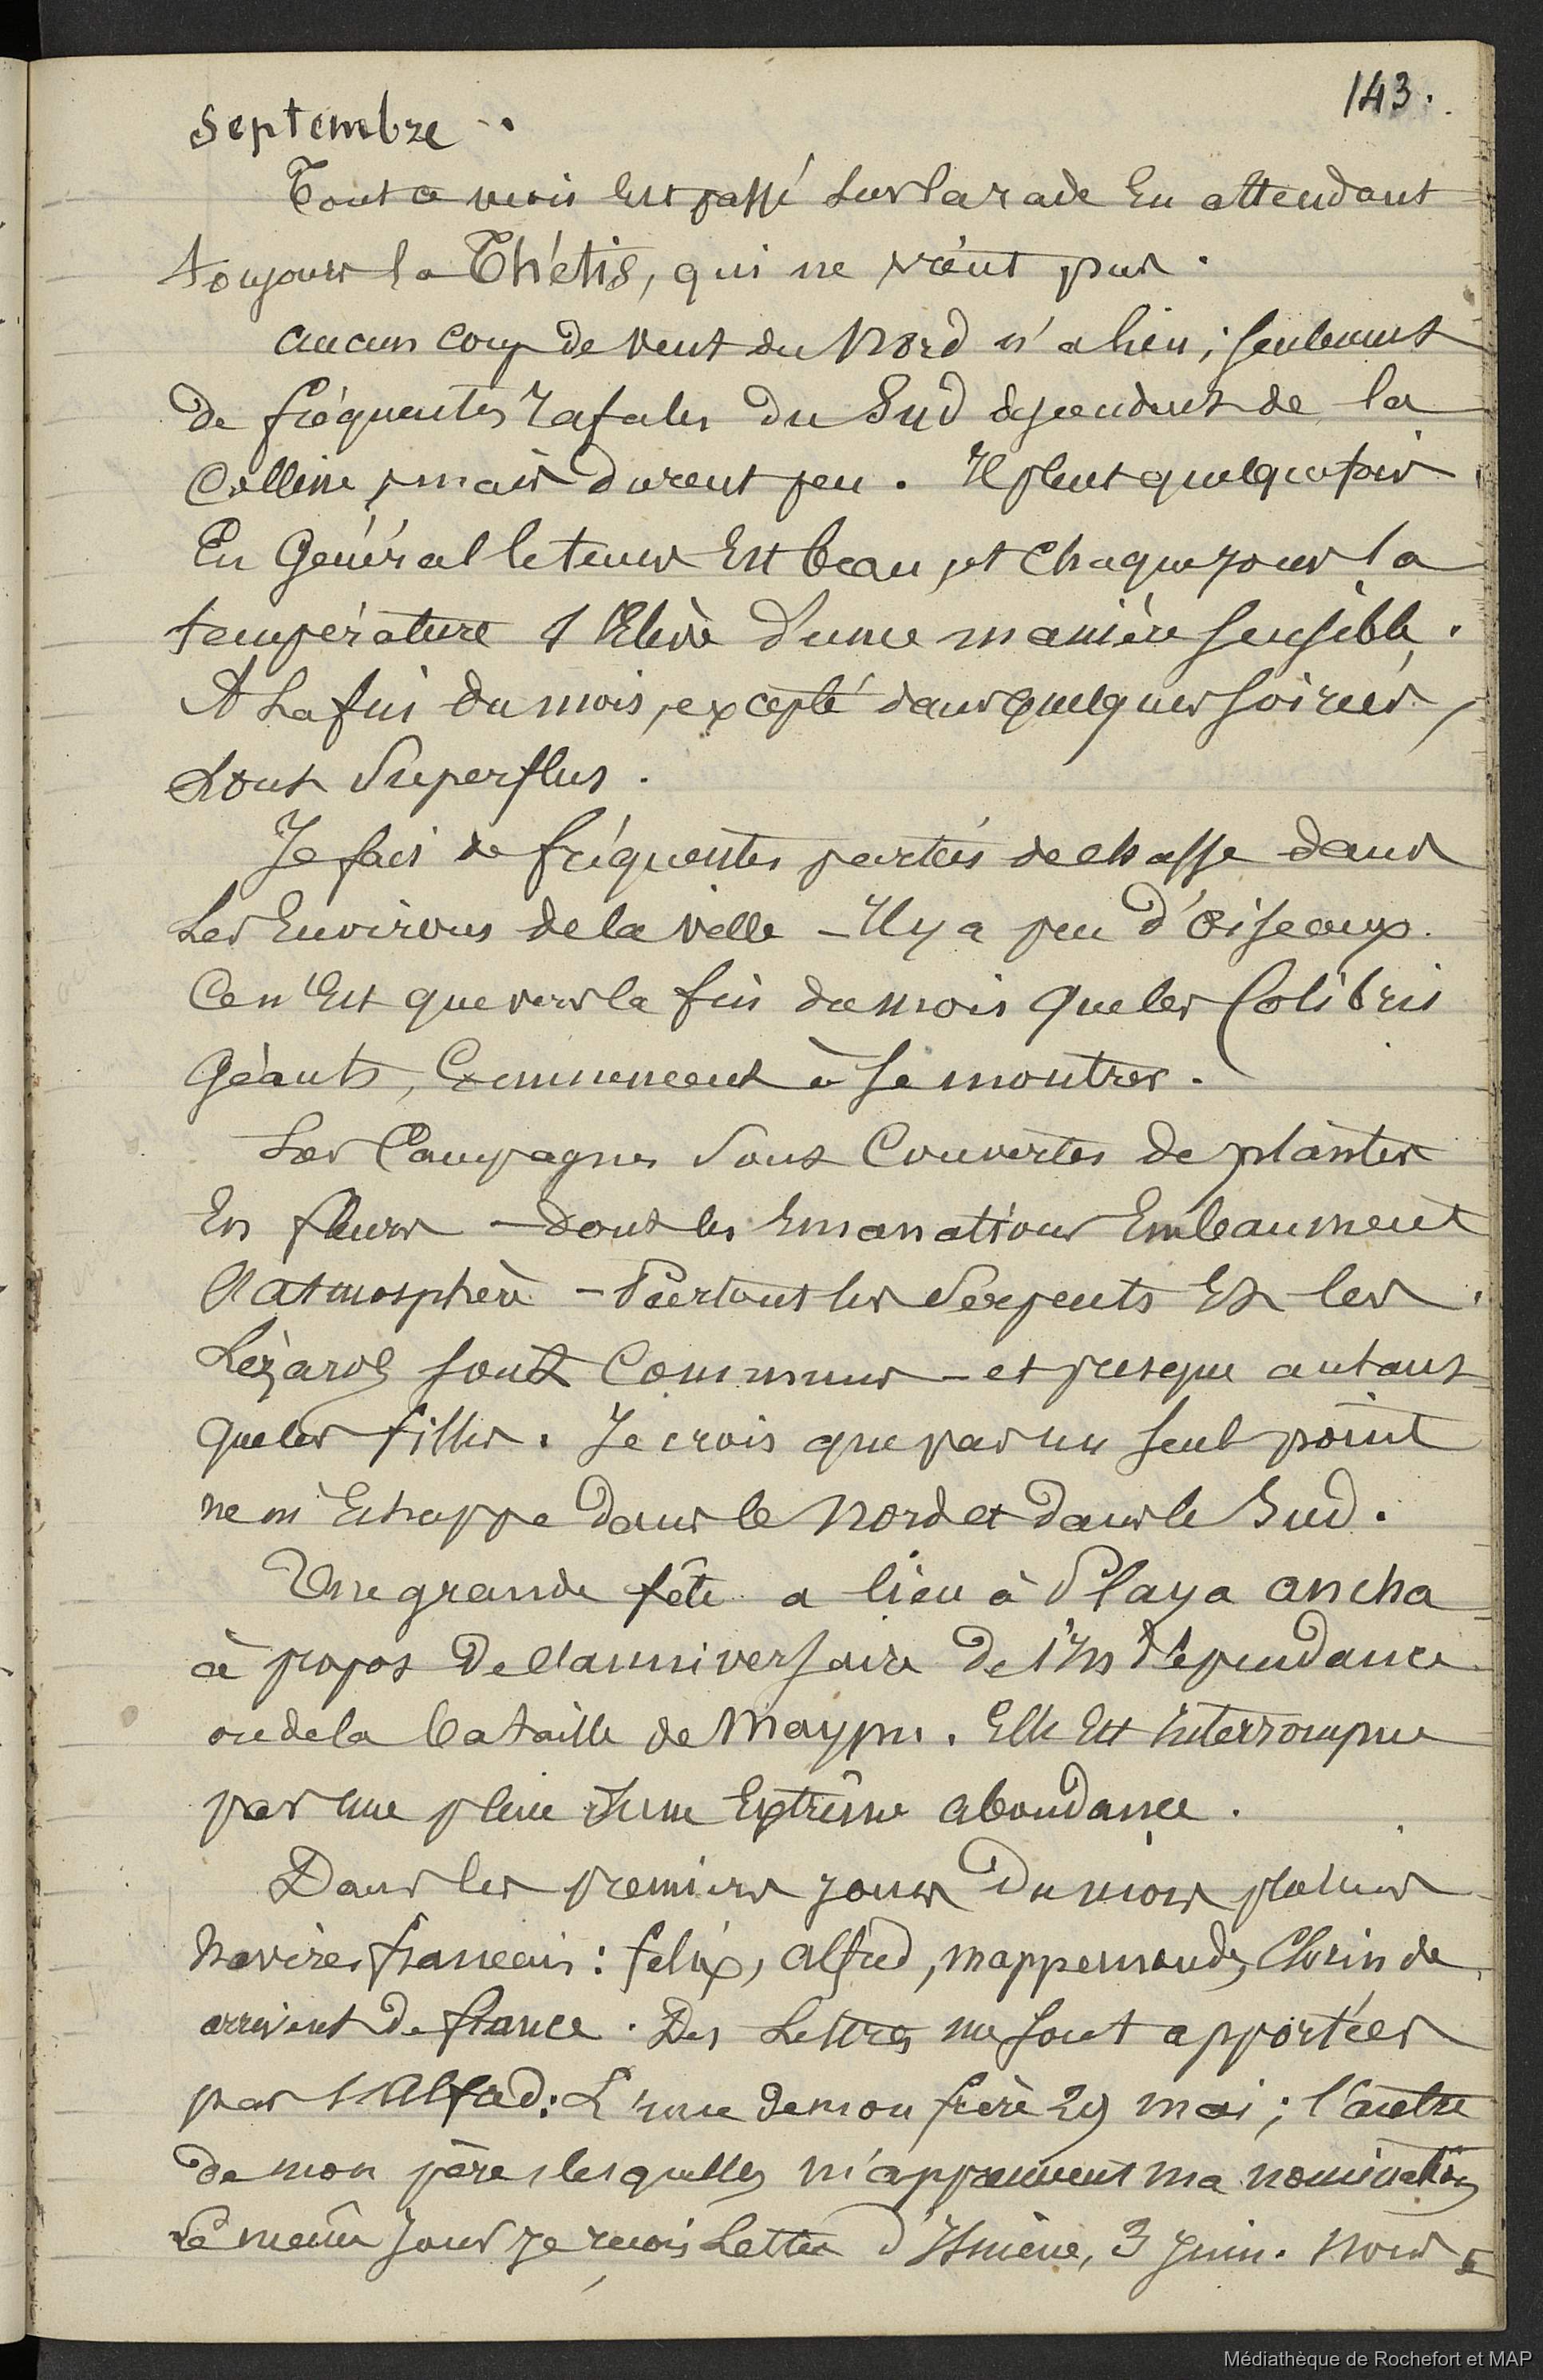 143.
Septembre
Tout ce mois est passé sur la rade en attendant
toujours la Thétis, qui ne vient pas.
Aucun coup de vent du Nord n'a lieu ; seulement
de fréquentes rafales du Sud descendent de la
Colline, mais durent peu. Il pleut quelquefois.
En Général le tems est beau, et chaque jour la
température s'élève d'une manière sensible.
A la fin du mois, excepté dans quelques soirées,
sont superflus.
Je fais de fréquentes parties de chasse dans
les environs de la ville - Il y a peu d'oiseaux.
Ce n'est que vers la fin du mois que les Colibris
Géants, commencent à se montrer.
Les Campagnes sont couvertes de plantes
en fleurs - dont les émanations embaument
l'atmosphère - Partout les serpents et les
Lézards sont communs - et presque autant
que les filles. Je crois que pas un seul point
ne m'échappe dans le nord et dans le Sud.
Une grande fête a lieu à Playa ancha
à propos de l'anniversaire de l'Indépendance
ou de la bataille de Maypu. Elle est interrompue
par une pluie d'une extrême abondance.
Dans les premiers jours du mois plusieurs
navires français : felix, alfred, mappemonde, Clorinde
arrivent de france. Des lettres me sont apportées
par l'Alfred : L'une de mon frère 29 mai ; l'autre
de mon père, lesquelles m'apprennent ma nomination
Le même jour je reçois lettre d'Ismène, 3 Juin.
Médiathèque de Rochefort et MAP